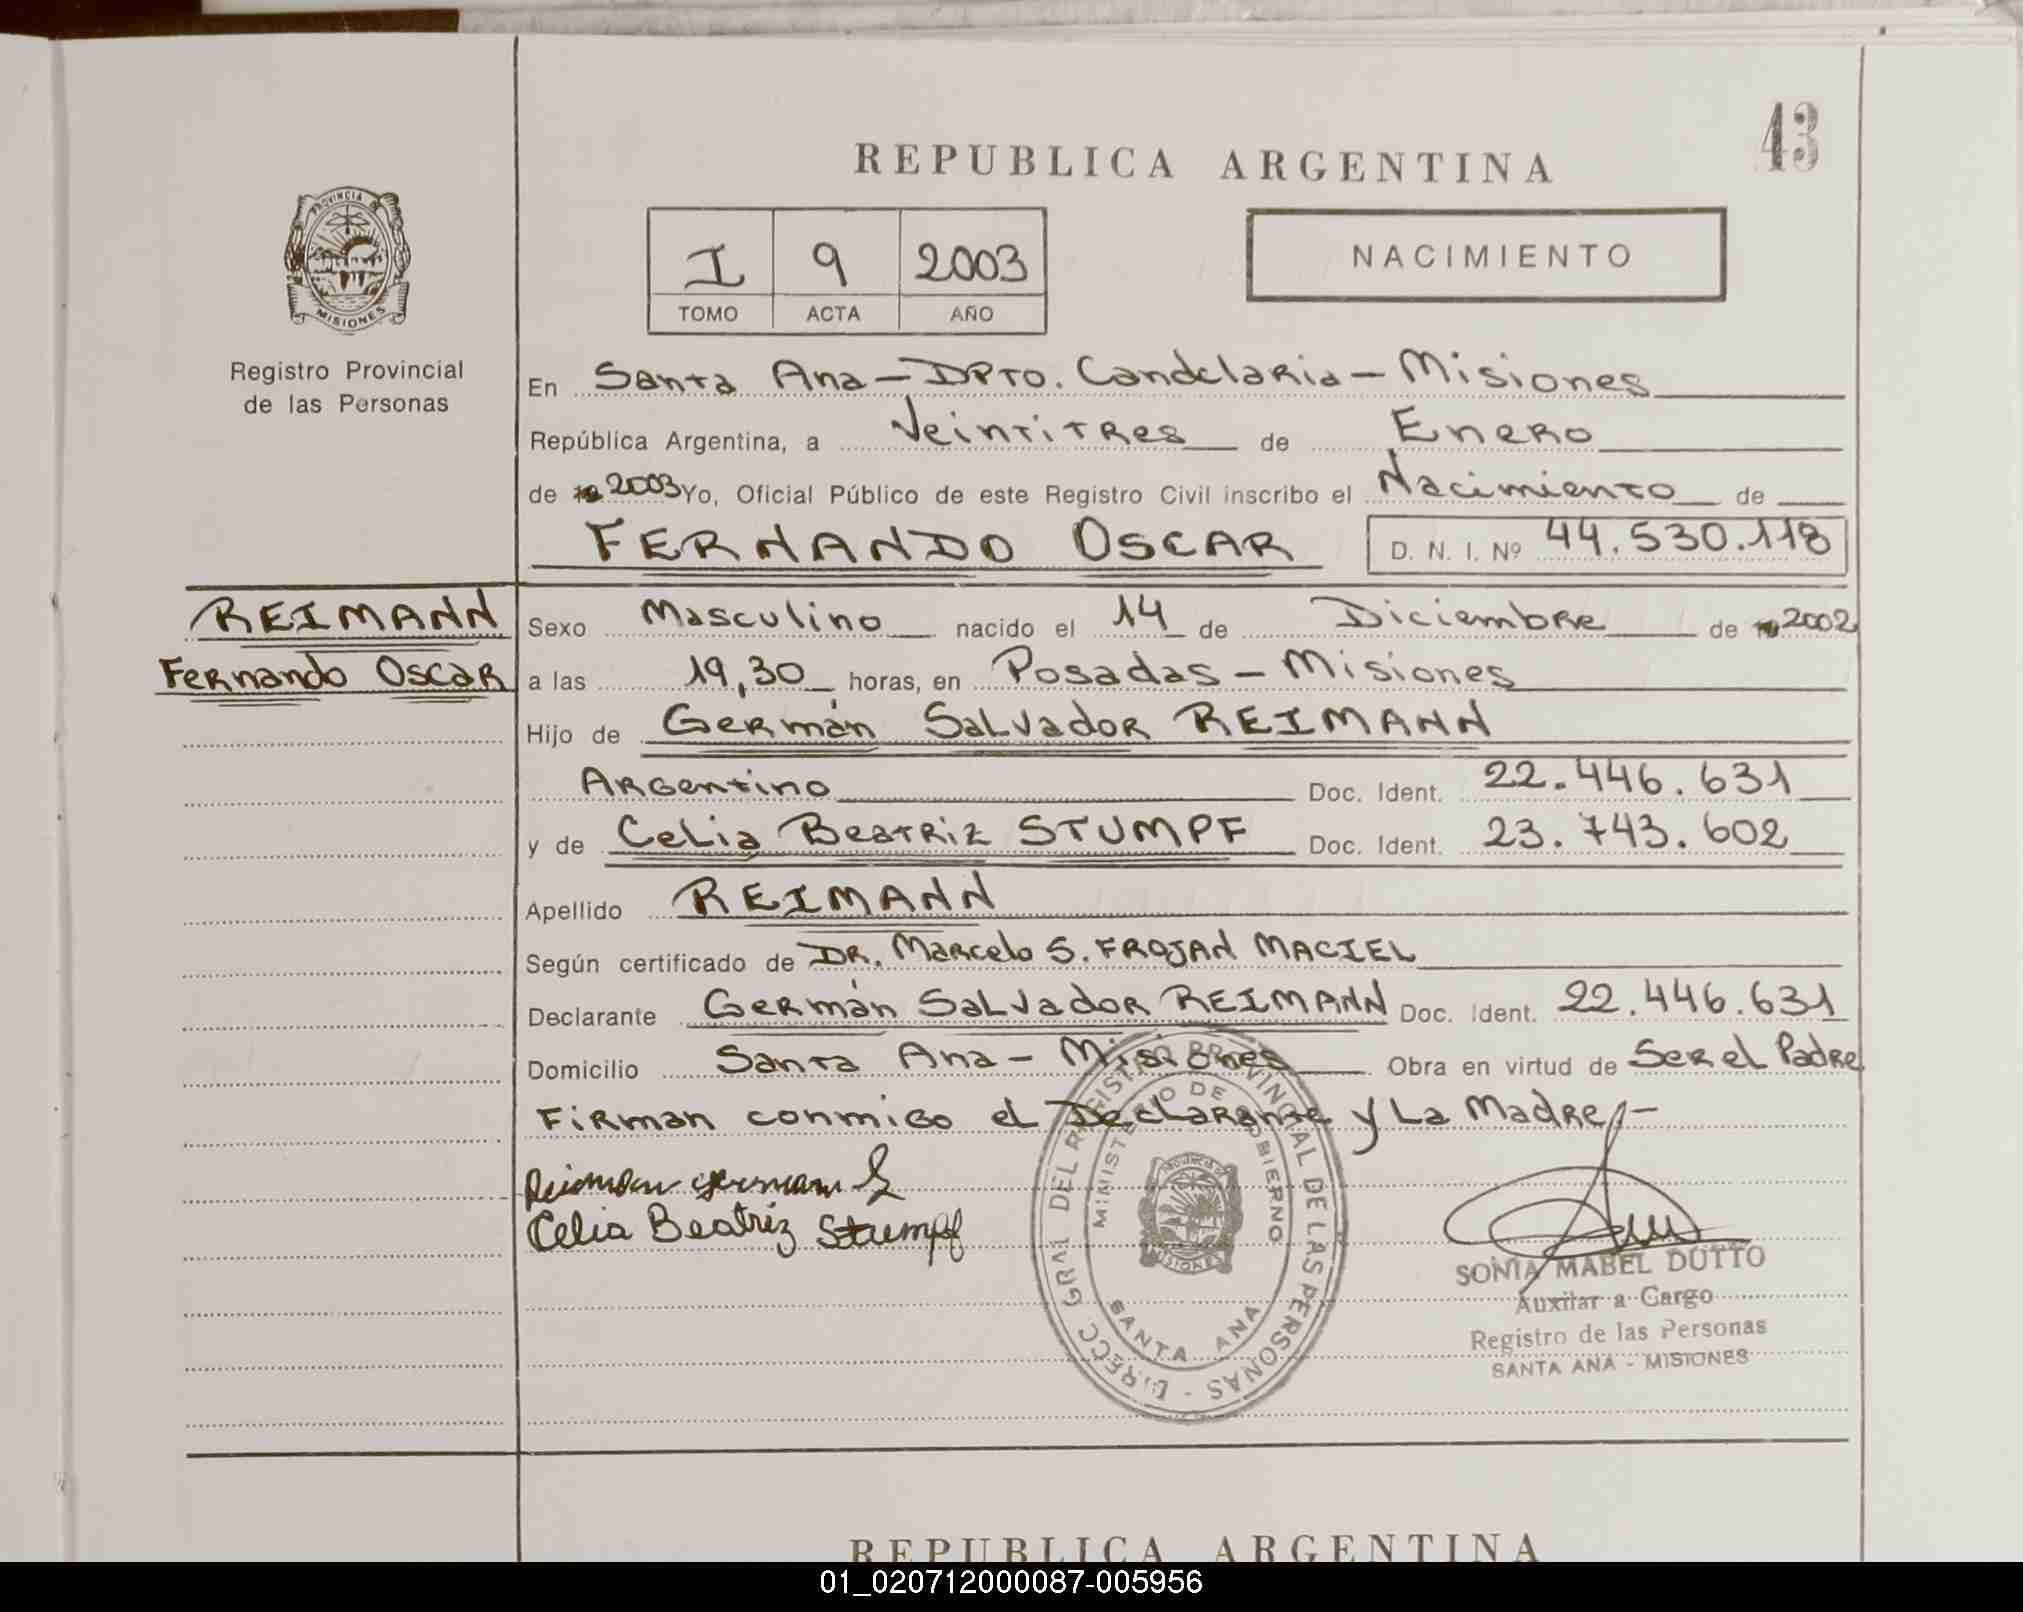 43
REPUBLICA ARGENTINA
PROVINCIA DE
MISIONES
I 9 2003
TOMO ACTA AÑO
NACIMIENTO
Registro Provincial
de las Personas
En Santa Ana - DPTO. Candelaria - Misiones
República Argentina, a Veintitres de Enero
de 2003 Yo, Oficial Público de este Registro Civil inscribo el Nacimiento de
FERNANDO OSCAR D. N. I. Nº 44.530.118
REIMANN
Fernando Oscar
Sexo Masculino nacido el 14 de Diciembre de 2002
a las 19,30 horas, en Posadas - Misiones
Hijo de Germán Salvador REIMANN
Argentino Doc. Ident. 22.446.631
y de Celia Beatriz STUMPF Doc. Ident. 23.743.602
Apellido REIMANN
Según certificado de DR. Marcelo S. FROJAN MACIEL
Declarante Germán Salvador REIMANN Doc. Ident. 22.446.631
Domicilio Santa Ana - Misiones Obra en virtud de Ser el Padre
Firman conmigo el Declarante y La Madre.-
Reimann German S
Celia Beatriz Stumpf
DIRECC GRAL DEL REGISTRO PROVINCIAL DE LAS PERSONAS -
MINISTERIO DE GOBIERNO
PROVINCIA DE
MISIONES
SANTA ANA
SONIA MABEL DUTTO
Auxiliar a Cargo
Registro de las Personas
SANTA ANA - MISIONES
REPUBLICA ARGENTINA
01_020712000087-005956